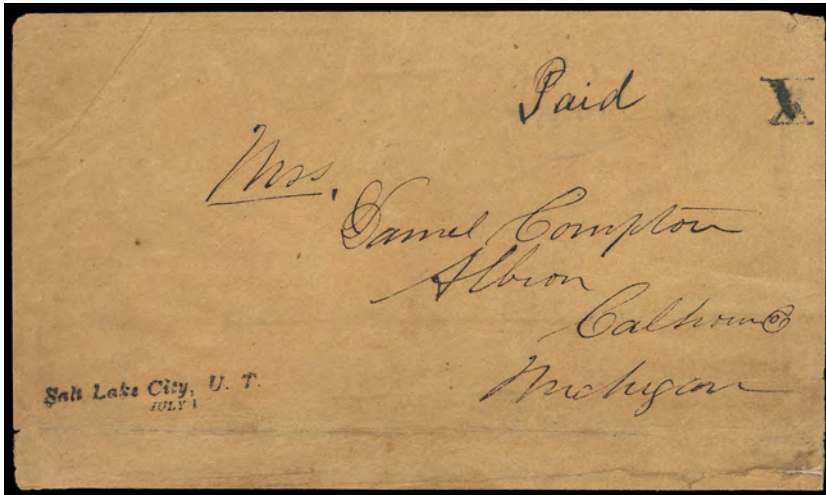 Paid
X
Mrs.
Daniel Compton
Albion
Calhoun Co
Michigan
Salt Lake City, U. T.
JULY 1